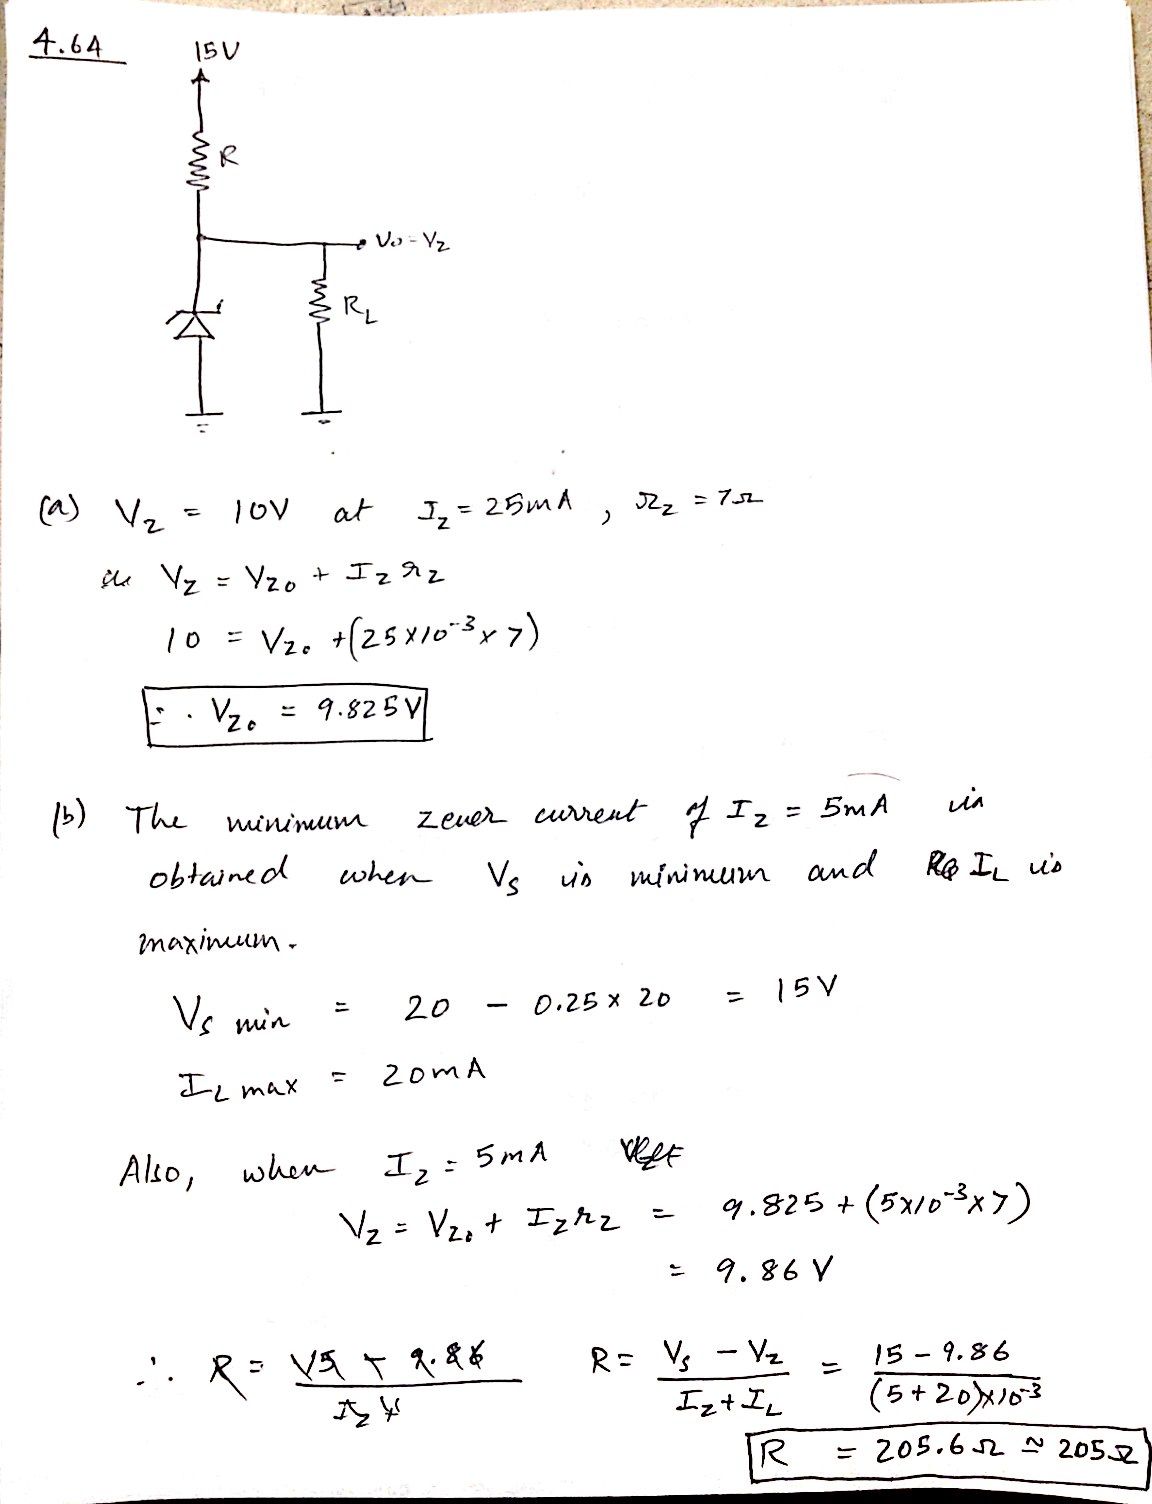 4.64
15V
R
Vo = Vz
RL
(a) Vz = 10V at Iz = 25mA , rz = 7Ω
Vz = Vzo + Iz rz
10 = Vzo + (25×10⁻³ × 7)
∴ Vzo = 9.825V
(b) The minimum zener current of Iz = 5mA is
obtained when Vs is minimum and IL is
maximum.
Vs min = 20 - 0.25 × 20 = 15V
IL max = 20mA
Also, when Iz = 5mA
Vz = Vzo + Iz rz = 9.825 + (5×10⁻³×7)
= 9.86 V
∴ R = R = Vs - Vz / Iz + IL = 15 - 9.86 / (5+20)×10⁻³
R = 205.6Ω ≃ 205Ω